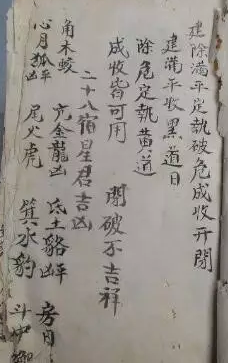 建除滿平定執破危成收开閉
建滿平收黑道日
除危定執黄道
成收皆可用 閉破不吉祥
二十八宿星君吉凶
角木蛟 亢金龍凶 氐土貉凶平 房日
心月狐平凶 尾火虎 箕水豹 斗木